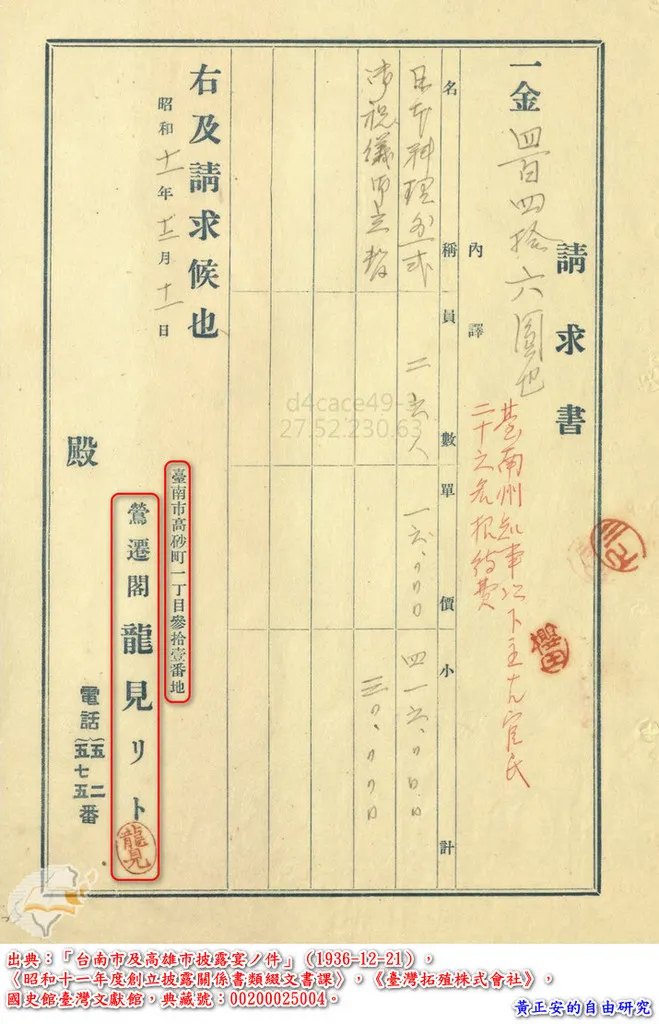 請求書
一金四百四拾六圓也
內譯
臺南州知事以下主ナ官民
二十六名招待費
名稱 員數 單價 小計
日本料理 二六人 一六、〇〇〇 四一六、〇〇〇
御祝儀 三〇、〇〇〇
右及請求候也
昭和十一年十二月十一日
臺南市高砂町一丁目參拾壹番地
鶯遷閣 龍見リト
龍見
電話(五二番
五七五番
殿
櫻田
d4cace49-
27.52.230.63
出典:「台南市及高雄市披露宴ノ件」(1936-12-21),
〈昭和十一年度創立披露關係書類綴文書課〉,《臺灣拓殖株式會社》,
國史館臺灣文獻館,典藏號:00200025004。
黃正安的自由研究